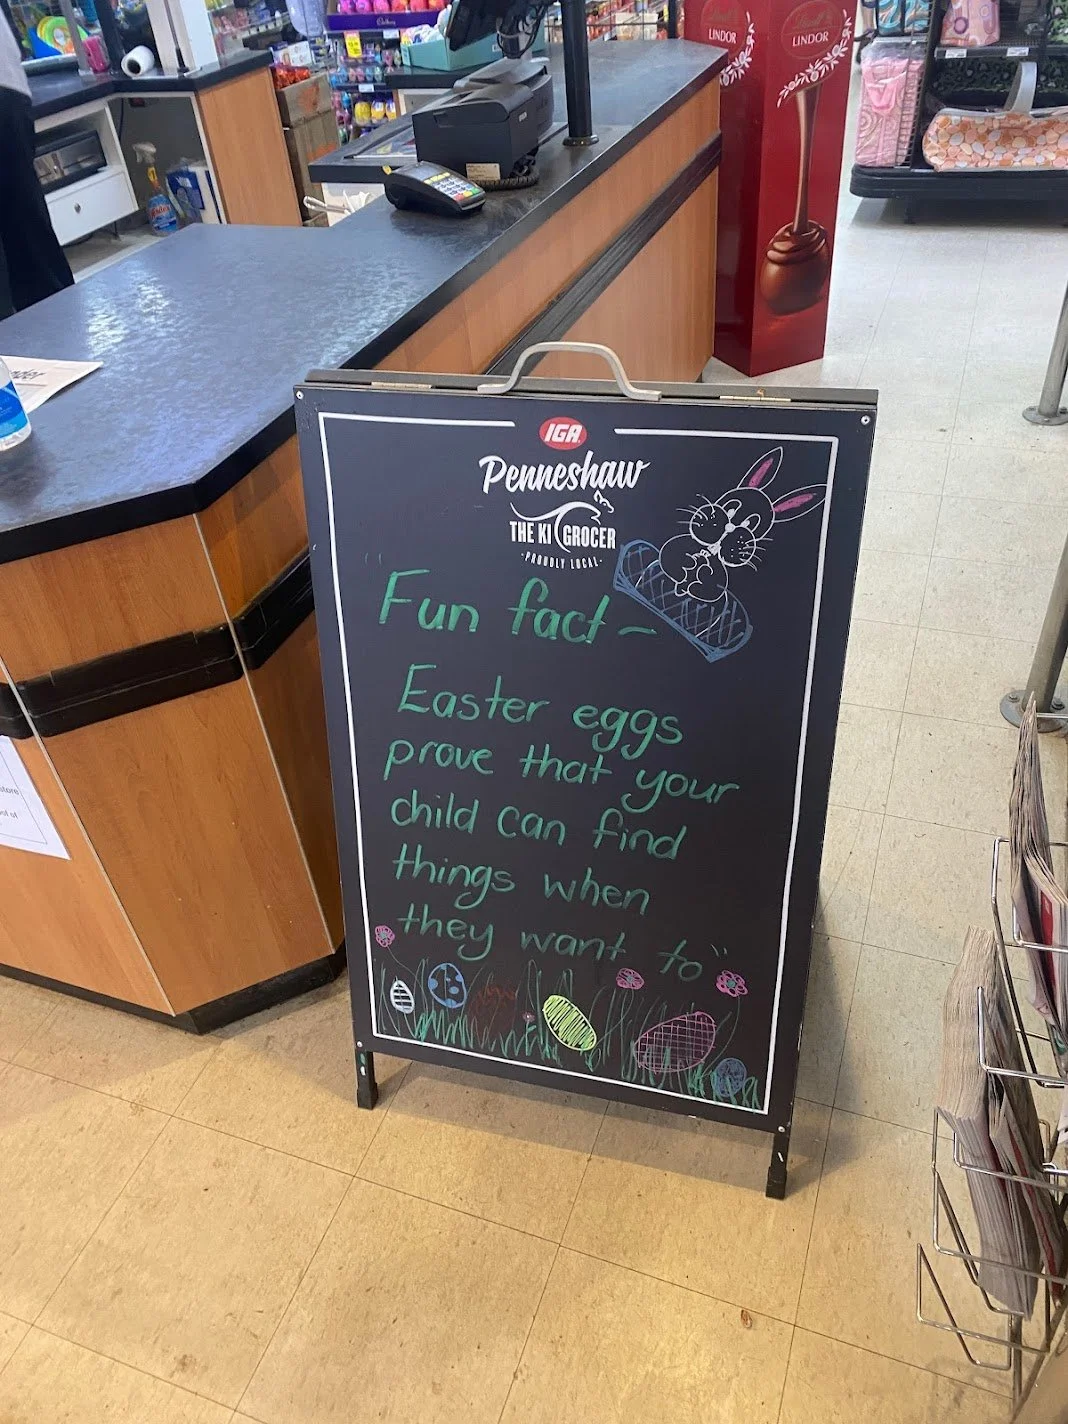 Cadbury
LINDOR
LINDOR
IGA
Penneshaw
THE KI GROCER
·PROUDLY LOCAL·
"Fun fact –
Easter eggs
prove that your
child can find
things when
they want to"
store